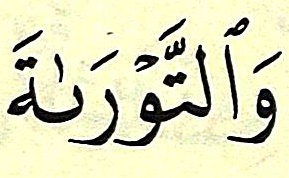 وَٱلتَّوۡرَىٰةَ